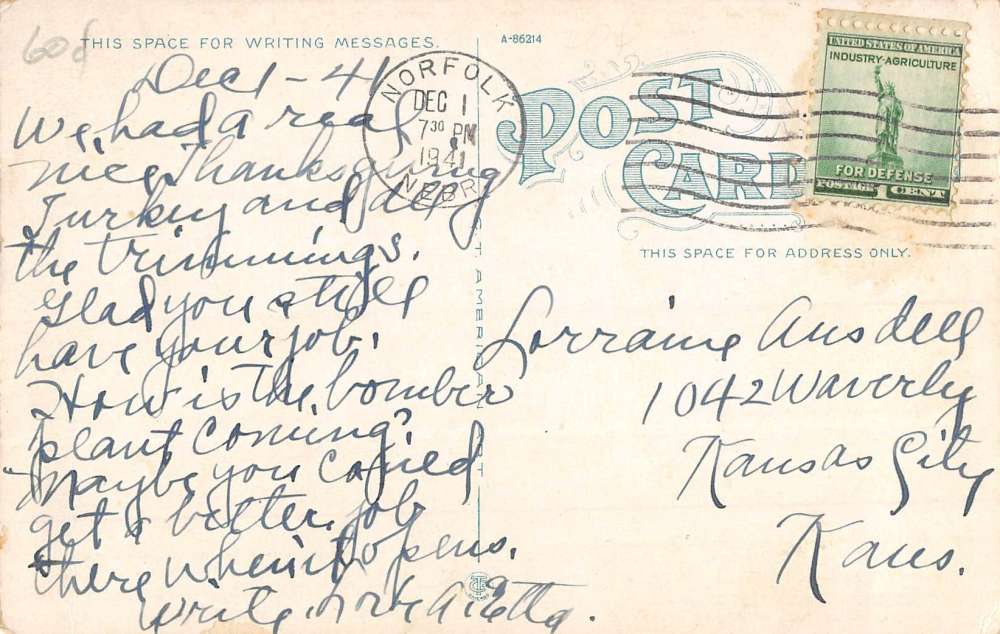 60¢
THIS SPACE FOR WRITING MESSAGES.
Dec 1-41
We had a real
nice Thanksgiving
Turkey and all
the trimmings.
Glad you still
have your job.
How is the bomber
plant coming?
Maybe you could
get a better job
there when it opens.
Write. Love A. Etta.
A-86214
C.T. AMERICAN ART
POST
CARD
NORFOLK
DEC 1
7 30 PM
1941
NEBR.
UNITED STATES OF AMERICA
INDUSTRY-AGRICULTURE
FOR DEFENSE
POSTAGE 1 CENT
THIS SPACE FOR ADDRESS ONLY.
Lorraine Ansdell
1042 Waverly
Kansas City
Kans.